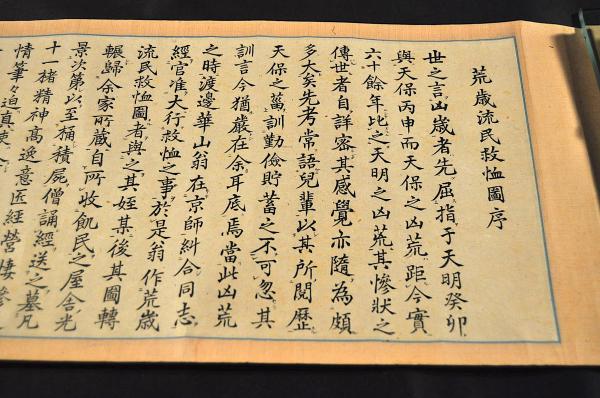 荒歳流民救恤圖序
世之言凶歳者先屈指于天明癸卯
與天保丙申而天保之凶荒距今實
六十餘年比之天明之凶荒其慘状之
傳世者自詳密其感覺亦隨為頗
多大矣先考常語兒輩以其所閲歷
天保之萬訓勤儉貯蓄之不可忽其
訓言今猶嚴在余耳底焉當此凶荒
之時渡邊華山翁在京師糾合同志
經官准大行救恤之事於是翁作荒歳
流民救恤圖者與之其姪某後其圖轉
輾歸余家所藏自所收飢民之屋舎光
景次第以至桶積屍僧誦經送之墓凡
十一楮精神高逸意匠經營悽
情筆々迫真使